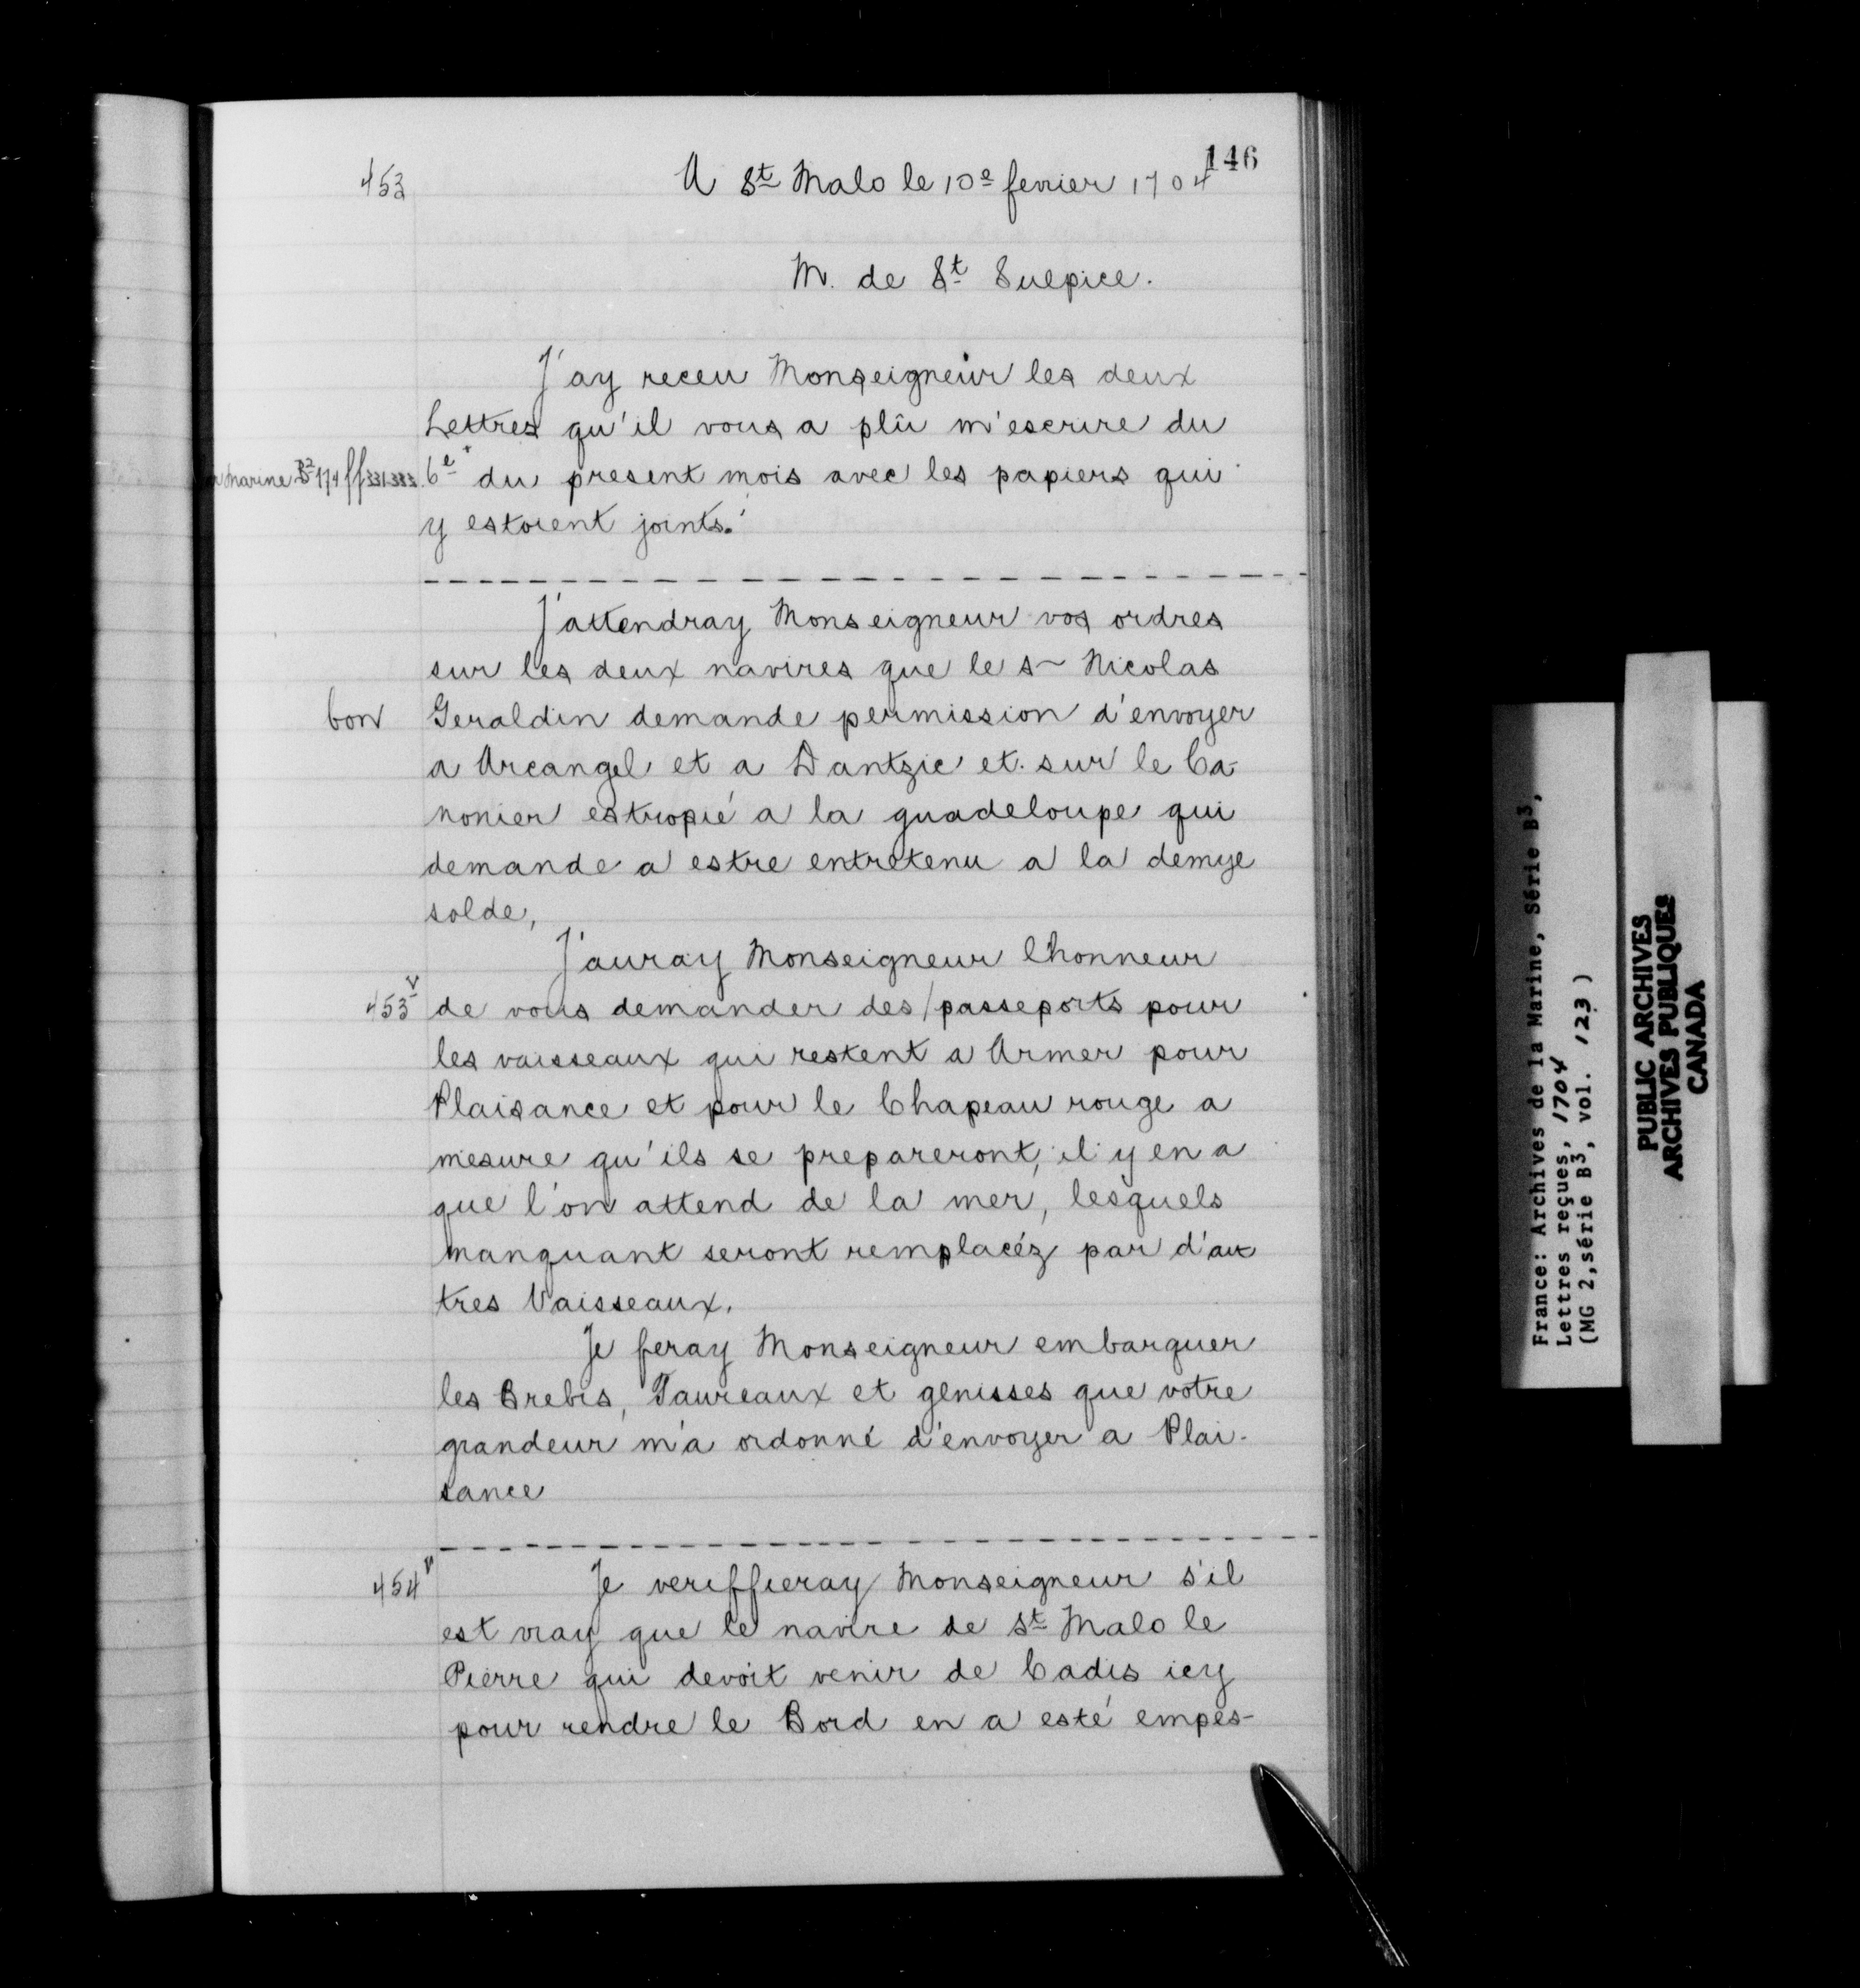 146
453 A St Malo le 10e fevrier 1704
M. de St Sulpice.
J'ay receu Monseigneur les deux
Lettres qu'il vous a plû m'escrire du
Marine B2 174 ff 331.333. 6e+ du present mois avec les papiers qui
y estoient joints.
J'attendray Monseigneur vos ordres
sur les deux navires que le s~ Nicolas
bon Geraldin demande permission d'envoyer
a Arcangel et a Dantzic et sur le Ca-
nonier estropié a la guadeloupe qui
demande a estre entretenu a la demye
solde,
J'auray Monseigneur l'honneur
453v de vous demander des / passeports pour
les vaisseaux qui restent a Armer pour
Plaisance et pour le Chapeau rouge a
mesure qu'ils se prepareront, il y en a
que l'on attend de la mer, lesquels
manquant seront remplacéz par d'au
tres Vaisseaux.
Je feray Monseigneur embarquer
les Brebis, Taureaux et genisses que votre
grandeur m'a ordonné d'envoyer a Plai-
sance
454v Je veriffieray Monseigneur s'il
est vray que le navire de St Malo le
Pierre qui devoit venir de Cadis icy
pour rendre le Bord en a esté empes-
France: Archives de la Marine, Série B3,
Lettres reçues, 1704
(MG 2,série B3, vol. 123 )
PUBLIC ARCHIVES
ARCHIVES PUBLIQUES
CANADA